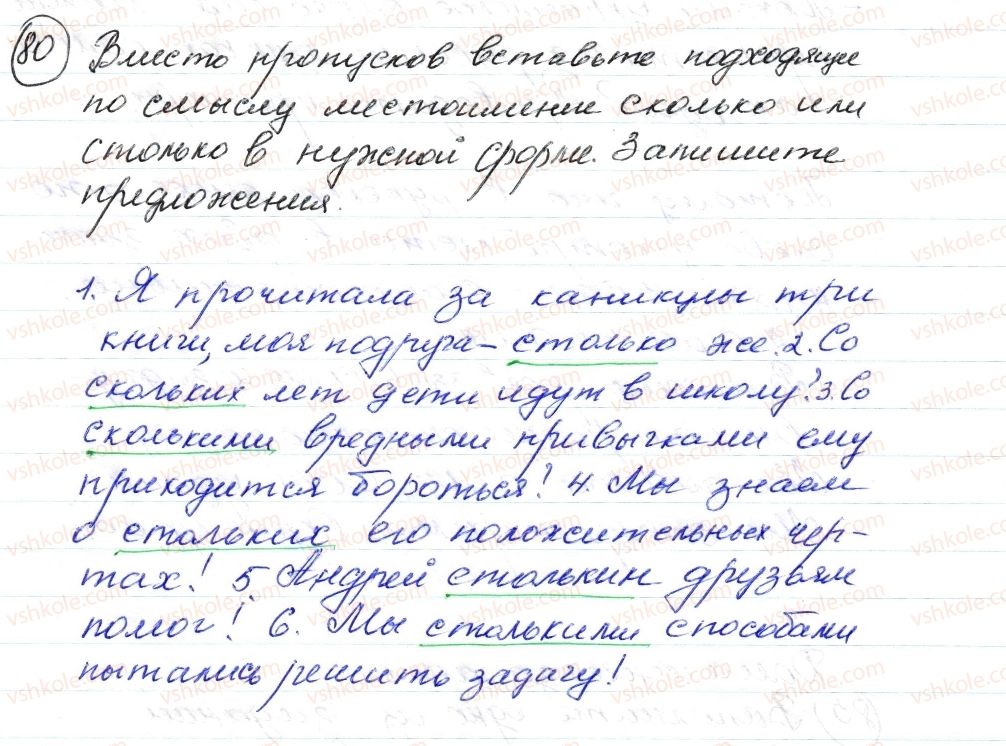 80 Вместо пропусков вставьте подходящие
по смыслу местоимение сколько или
столько в нужной форме. Запишите
предложения.
1. Я прочитала за каникулы три
книги, моя подруга – столько же. 2. Со
скольких лет дети идут в школу? 3. Со
сколькими вредными привычками ему
приходится бороться! 4. Мы знаем
о стольких его положительных чер-
тах! 5. Андрей стольким друзьям
помог! 6. Мы столькими способами
пытались решить задачу!